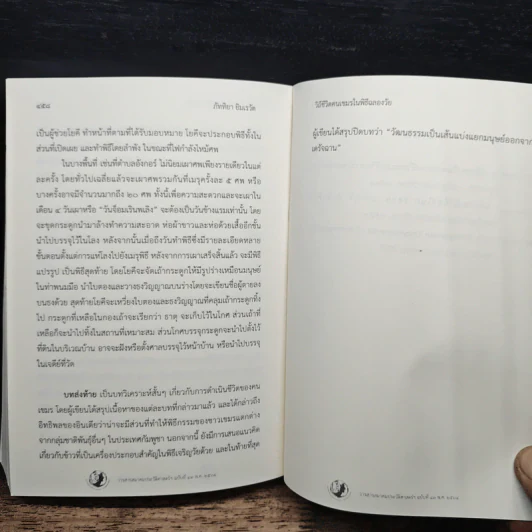 ๔๕๘
ภัททิยา ยิมเรวัต
เป็นผู้ช่วยโยคี ทำหน้าที่ตามที่ได้รับมอบหมาย โยคีจะประกอบพิธีทั้งใน
ส่วนที่เปิดเผย และทำพิธีโดยลำพัง ในขณะที่ไฟกำลังไหม้ศพ
ในบางพื้นที่ เช่นที่ตำบลอังกอร์ ไม่นิยมเผาศพเพียงรายเดียวในแต่
ละครั้ง โดยทั่วไปเฉลี่ยแล้วจะเผาศพรวมกันที่เมรุครั้งละ ๕ ศพ หรือ
บางครั้งอาจมีจำนวนมากถึง ๒๐ ศพ ทั้งนี้เพื่อความสะดวกและจะเผาใน
เดือน ๔ วันเผาหรือ “วันจ็อมเรินพเลิง” จะต้องเป็นวันข้างแรมเท่านั้น โดย
จะขุดกระดูกนำมาล้างทำความสะอาด ห่อผ้าขาวและห่อด้วยเสื่ออีกชั้น
นำไปบรรจุไว้ในโลง หลังจากนั้นเมื่อถึงวันทำพิธีซึ่งมีรายละเอียดหลาย
ขั้นตอนตั้งแต่การแห่โลงไปยังเมรุพิธี หลังจากการเผาเสร็จสิ้นแล้ว จะมีพิธี
แปรรูป เป็นพิธีสุดท้าย โดยโยคีจะจัดเถ้ากระดูกให้มีรูปร่างเหมือนมนุษย์
ในท่าพนมมือ นำใบตองและวางธงวิญญาณบนร่างโดยจะเขียนชื่อผู้ตายลง
บนธงด้วย สุดท้ายโยคีจะเหวี่ยงใบตองและธงวิญญาณที่คลุมเถ้ากระดูกทิ้ง
ไป กระดูกที่เหลือในกองเถ้าจะเรียกว่า ธาตุ จะเก็บไว้ในโกศ ส่วนเถ้าที่
เหลือก็จะนำไปทิ้งในสถานที่เหมาะสม ส่วนโกศบรรจุกระดูกจะนำไปตั้งไว้
ที่ดินในบริเวณบ้าน อาจจะฝังหรือตั้งศาลบรรจุไว้หน้าบ้าน หรือนำไปบรรจุ
ในเจดีย์ที่วัด
บทส่งท้าย เป็นบทวิเคราะห์สั้นๆ เกี่ยวกับการดำเนินชีวิตของคน
เขมร โดยผู้เขียนได้สรุปเนื้อหาของแต่ละบทที่กล่าวมาแล้ว และได้กล่าวถึง
อิทธิพลของอินเดียว่าน่าจะมีส่วนที่ทำให้พิธีกรรมของชาวเขมรแตกต่าง
จากกลุ่มชาติพันธุ์อื่นๆ ในประเทศกัมพูชา นอกจากนี้ ยังมีการเสนอแนวคิด
เกี่ยวกับข้าวที่เป็นเครื่องประกอบสำคัญในพิธีเจริญวัยด้วย และในท้ายที่สุด
วารสารสมาคมประวัติศาสตร์ฯ ฉบับที่
วิถีชีวิตคนเขมรในพิธีฉลองวัย
ผู้เขียนได้สรุปปิดบทว่า “วัฒนธรรมเป็นเส้นแบ่งแยกมนุษย์ออกจาก
เดรัจฉาน”
วารสารสมาคมประวัติศาสตร์ฯ ฉบับที่